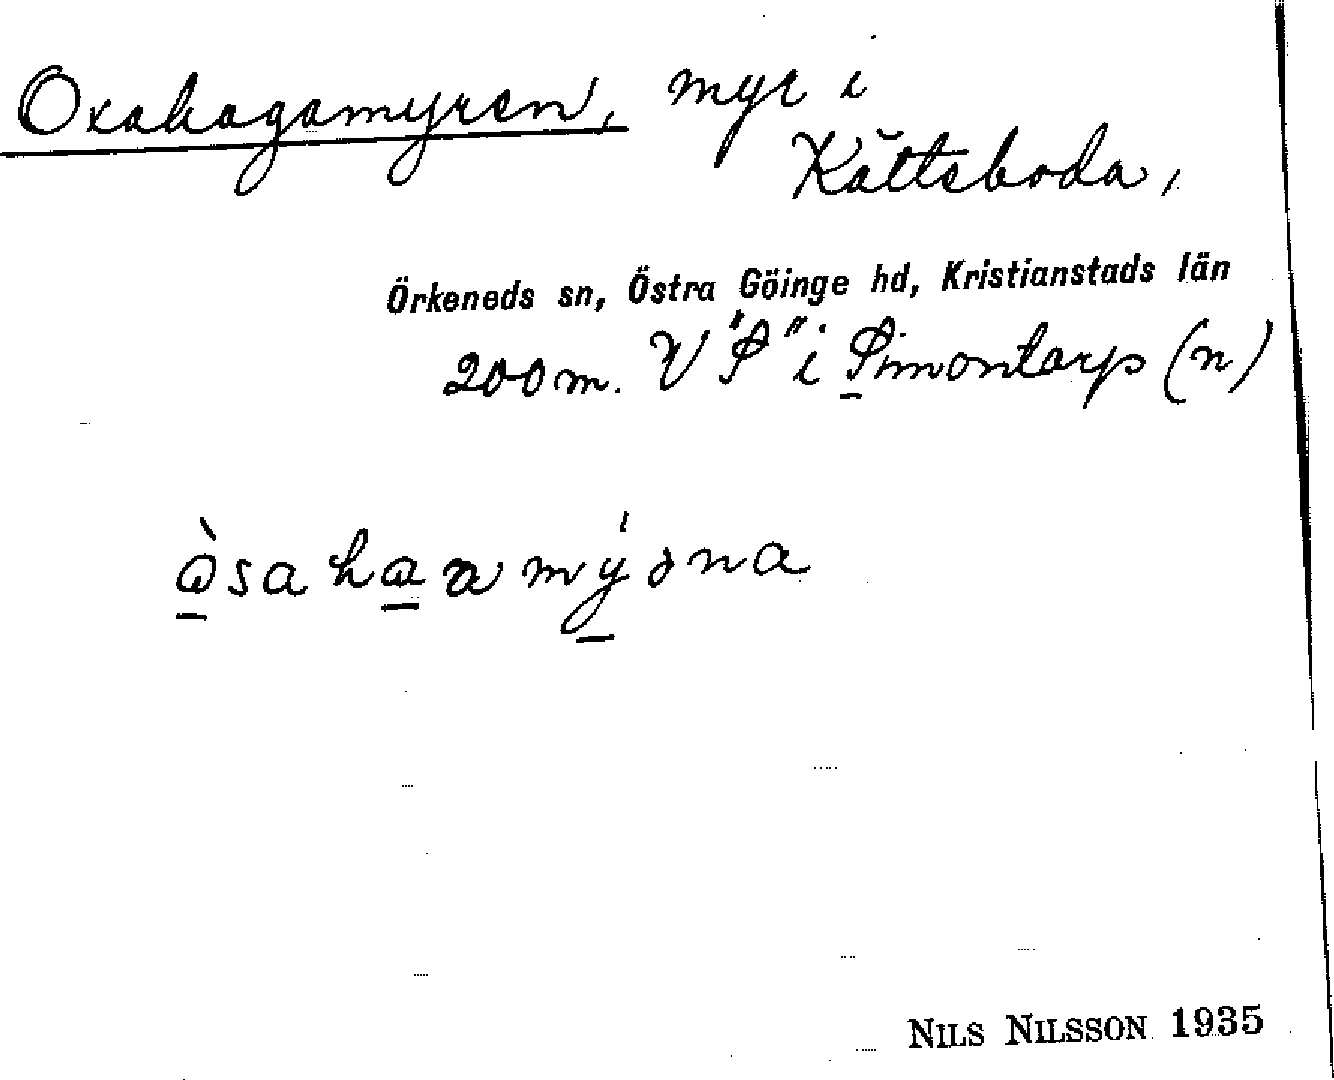 Oxahagamyren, myr i
Kättsboda,
Örkeneds sn, Östra Göinge hd, Kristianstads län
200 m. V "S" i Simontorp (n)
NILS NILSSON 1935